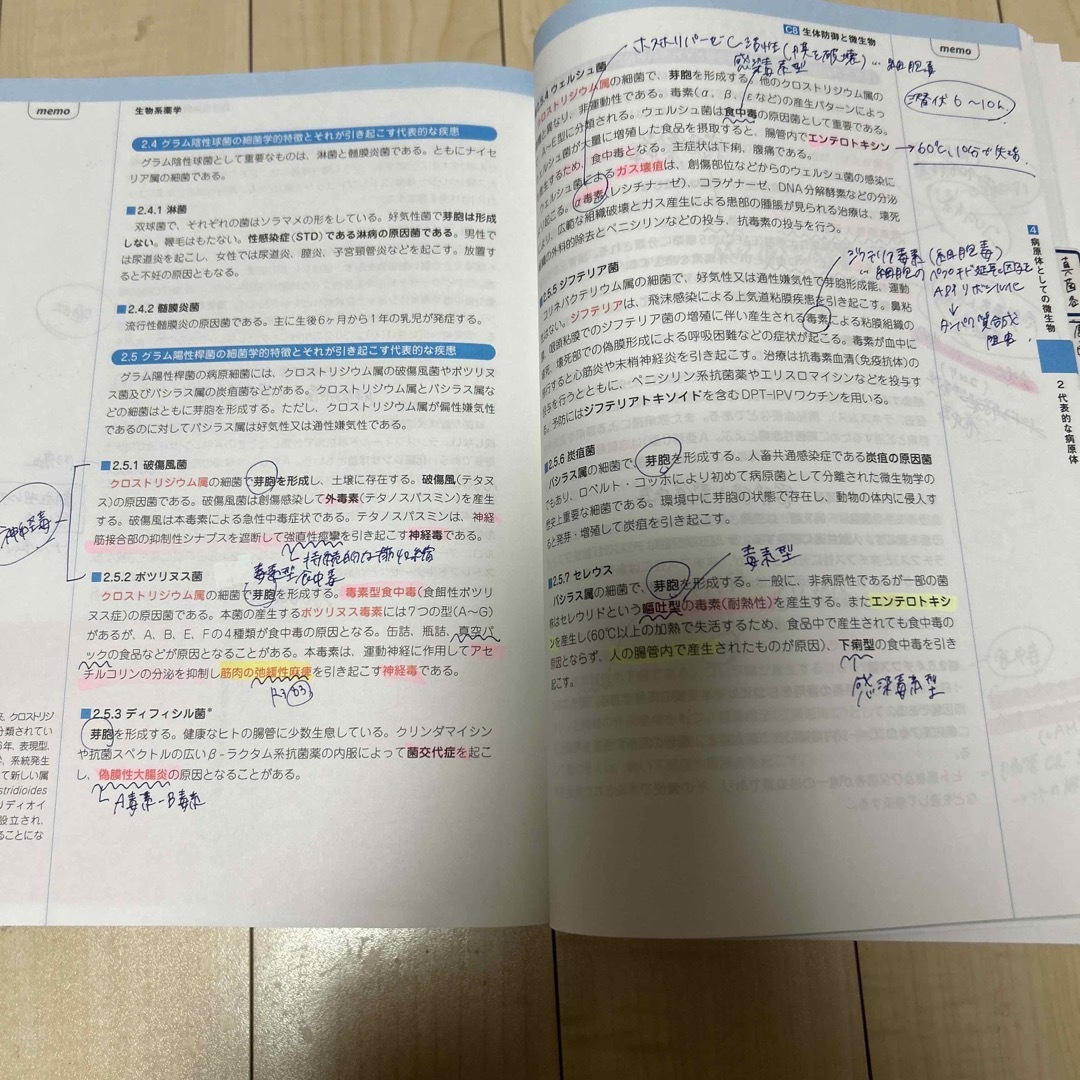 memo
生物系薬学
2.4 グラム陰性球菌の細菌学的特徴とそれが引き起こす代表的な疾患
グラム陰性球菌として重要なものは、淋菌と髄膜炎菌である。ともにナイセ
リア属の細菌である。
■2.4.1 淋菌
双球菌で、それぞれの菌はソラマメの形をしている。好気性菌で芽胞は形成
しない。鞭毛はもたない。性感染症(STD)である淋病の原因菌である。男性で
は尿道炎を起こし、女性では尿道炎、膣炎、子宮頸管炎などを起こす。放置す
ると不妊の原因ともなる。
■2.4.2 髄膜炎菌
流行性髄膜炎の原因菌である。主に生後6ヶ月から1年の乳児が発症する。
2.5 グラム陽性桿菌の細菌学的特徴とそれが引き起こす代表的な疾患
グラム陽性桿菌の病原細菌には、クロストリジウム属の破傷風菌やボツリヌ
ス菌及びバシラス属の炭疽菌などがある。クロストリジウム属とバシラス属な
どの細菌はともに芽胞を形成する。ただし、クロストリジウム属が偏性嫌気性
であるのに対してバシラス属は好気性又は通性嫌気性である。
■2.5.1 破傷風菌
クロストリジウム属の細菌で芽胞を形成し、土壌に存在する。破傷風(テタヌ
ス)の原因菌である。破傷風菌は創傷感染して外毒素(テタノスパスミン)を産生
する。破傷風は本毒素による急性中毒症状である。テタノスパスミンは、神経
筋接合部の抑制性シナプスを遮断して強直性痙攣を引き起こす神経毒である。
神経毒
持続的な筋収縮
毒素型食中毒
■2.5.2 ボツリヌス菌
クロストリジウム属の細菌で芽胞を形成する。毒素型食中毒(食餌性ボツリ
ヌス症)の原因菌である。本菌の産生するボツリヌス毒素には7つの型(A〜G)
があるが、A、B、E、Fの4種類が食中毒の原因となる。缶詰、瓶詰、真空パ
ックの食品などが原因となることがある。本毒素は、運動神経に作用してアセ
チルコリンの分泌を抑制し筋肉の弛緩性麻痺を引き起こす神経毒である。
■2.5.3 ディフィシル菌*
芽胞を形成する。健康なヒトの腸管に少数生息している。クリンダマイシン
や抗菌スペクトルの広いβ-ラクタム系抗菌薬の内服によって菌交代症を起こ
し、偽膜性大腸炎の原因となることがある。
A毒素-B毒素
クロストリジ
分類されてい
6年、表現型、
、系統発生
て新しい属
stridioides
リディオイ
設立され、
ることにな
C8 生体防御と微生物
memo
ホスホリパーゼC活性(膜を破壊)…細胞毒
感染毒素型
潜伏6〜10h
2.5.4 ウェルシュ菌
クロストリジウム属の細菌で、芽胞を形成する。他のクロストリジウム属の
と異なり、非運動性である。毒素(α、β、εなど)の産生パターンによっ
A〜E型に分類される。ウェルシュ菌は食中毒の原因菌として重要である。
ウェルシュ菌が大量に増殖した食品を摂取すると、腸管内でエンテロトキシン
生するため、食中毒となる。主症状は下痢、腹痛である。
→60℃、10分で失活
ウェルシュ菌によるガス壊疽は、創傷部位などからのウェルシュ菌の感染に
り起こる。α毒素(レシチナーゼ)、コラゲナーゼ、DNA分解酵素などの分泌
より、広範な組織破壊とガス産生による患部の腫脹が見られる治療は、壊死
織の外科的除去とペニシリンなどの投与、抗毒素の投与を行う。
ジフテリア毒素(細胞毒)
…細胞のペプチド延長因子を
ADPリボシル化
→タンパク質合成
阻害
■2.5.5 ジフテリア菌
コリネバクテリウム属の細菌で、好気性又は通性嫌気性で芽胞形成能、運動
はない。ジフテリアは、飛沫感染による上気道粘膜疾患を引き起こす。鼻粘
、咽頭粘膜でのジフテリア菌の増殖に伴い産生される毒素による粘膜組織の
死、壊死部での偽膜形成による呼吸困難などの症状が起こる。毒素が血中に
行すると心筋炎や末梢神経炎を引き起こす。治療は抗毒素血清(免疫抗体)の
与を行うとともに、ペニシリン系抗菌薬やエリスロマイシンなどを投与す
る。予防にはジフテリアトキソイドを含むDPT-IPVワクチンを用いる。
■2.5.6 炭疽菌
バシラス属の細菌で、芽胞を形成する。人畜共通感染症である炭疽の原因菌
でもあり、ロベルト・コッホにより初めて病原菌として分離された微生物学の
歴史上重要な細菌である。環境中に芽胞の状態で存在し、動物の体内に侵入す
ると発芽・増殖して炭疽を引き起こす。
毒素型
■2.5.7 セレウス
バシラス属の細菌で、芽胞を形成する。一般に、非病原性であるが一部の菌
株はセレウリドという嘔吐型の毒素(耐熱性)を産生する。またエンテロトキシ
ンを産生し(60℃以上の加熱で失活するため、食品中で産生されても食中毒の
原因とならず、人の腸管内で産生されたものが原因)、下痢型の食中毒を引き
起こす。
感染毒素型
4 病原体としての微生物
2 代表的な病原体